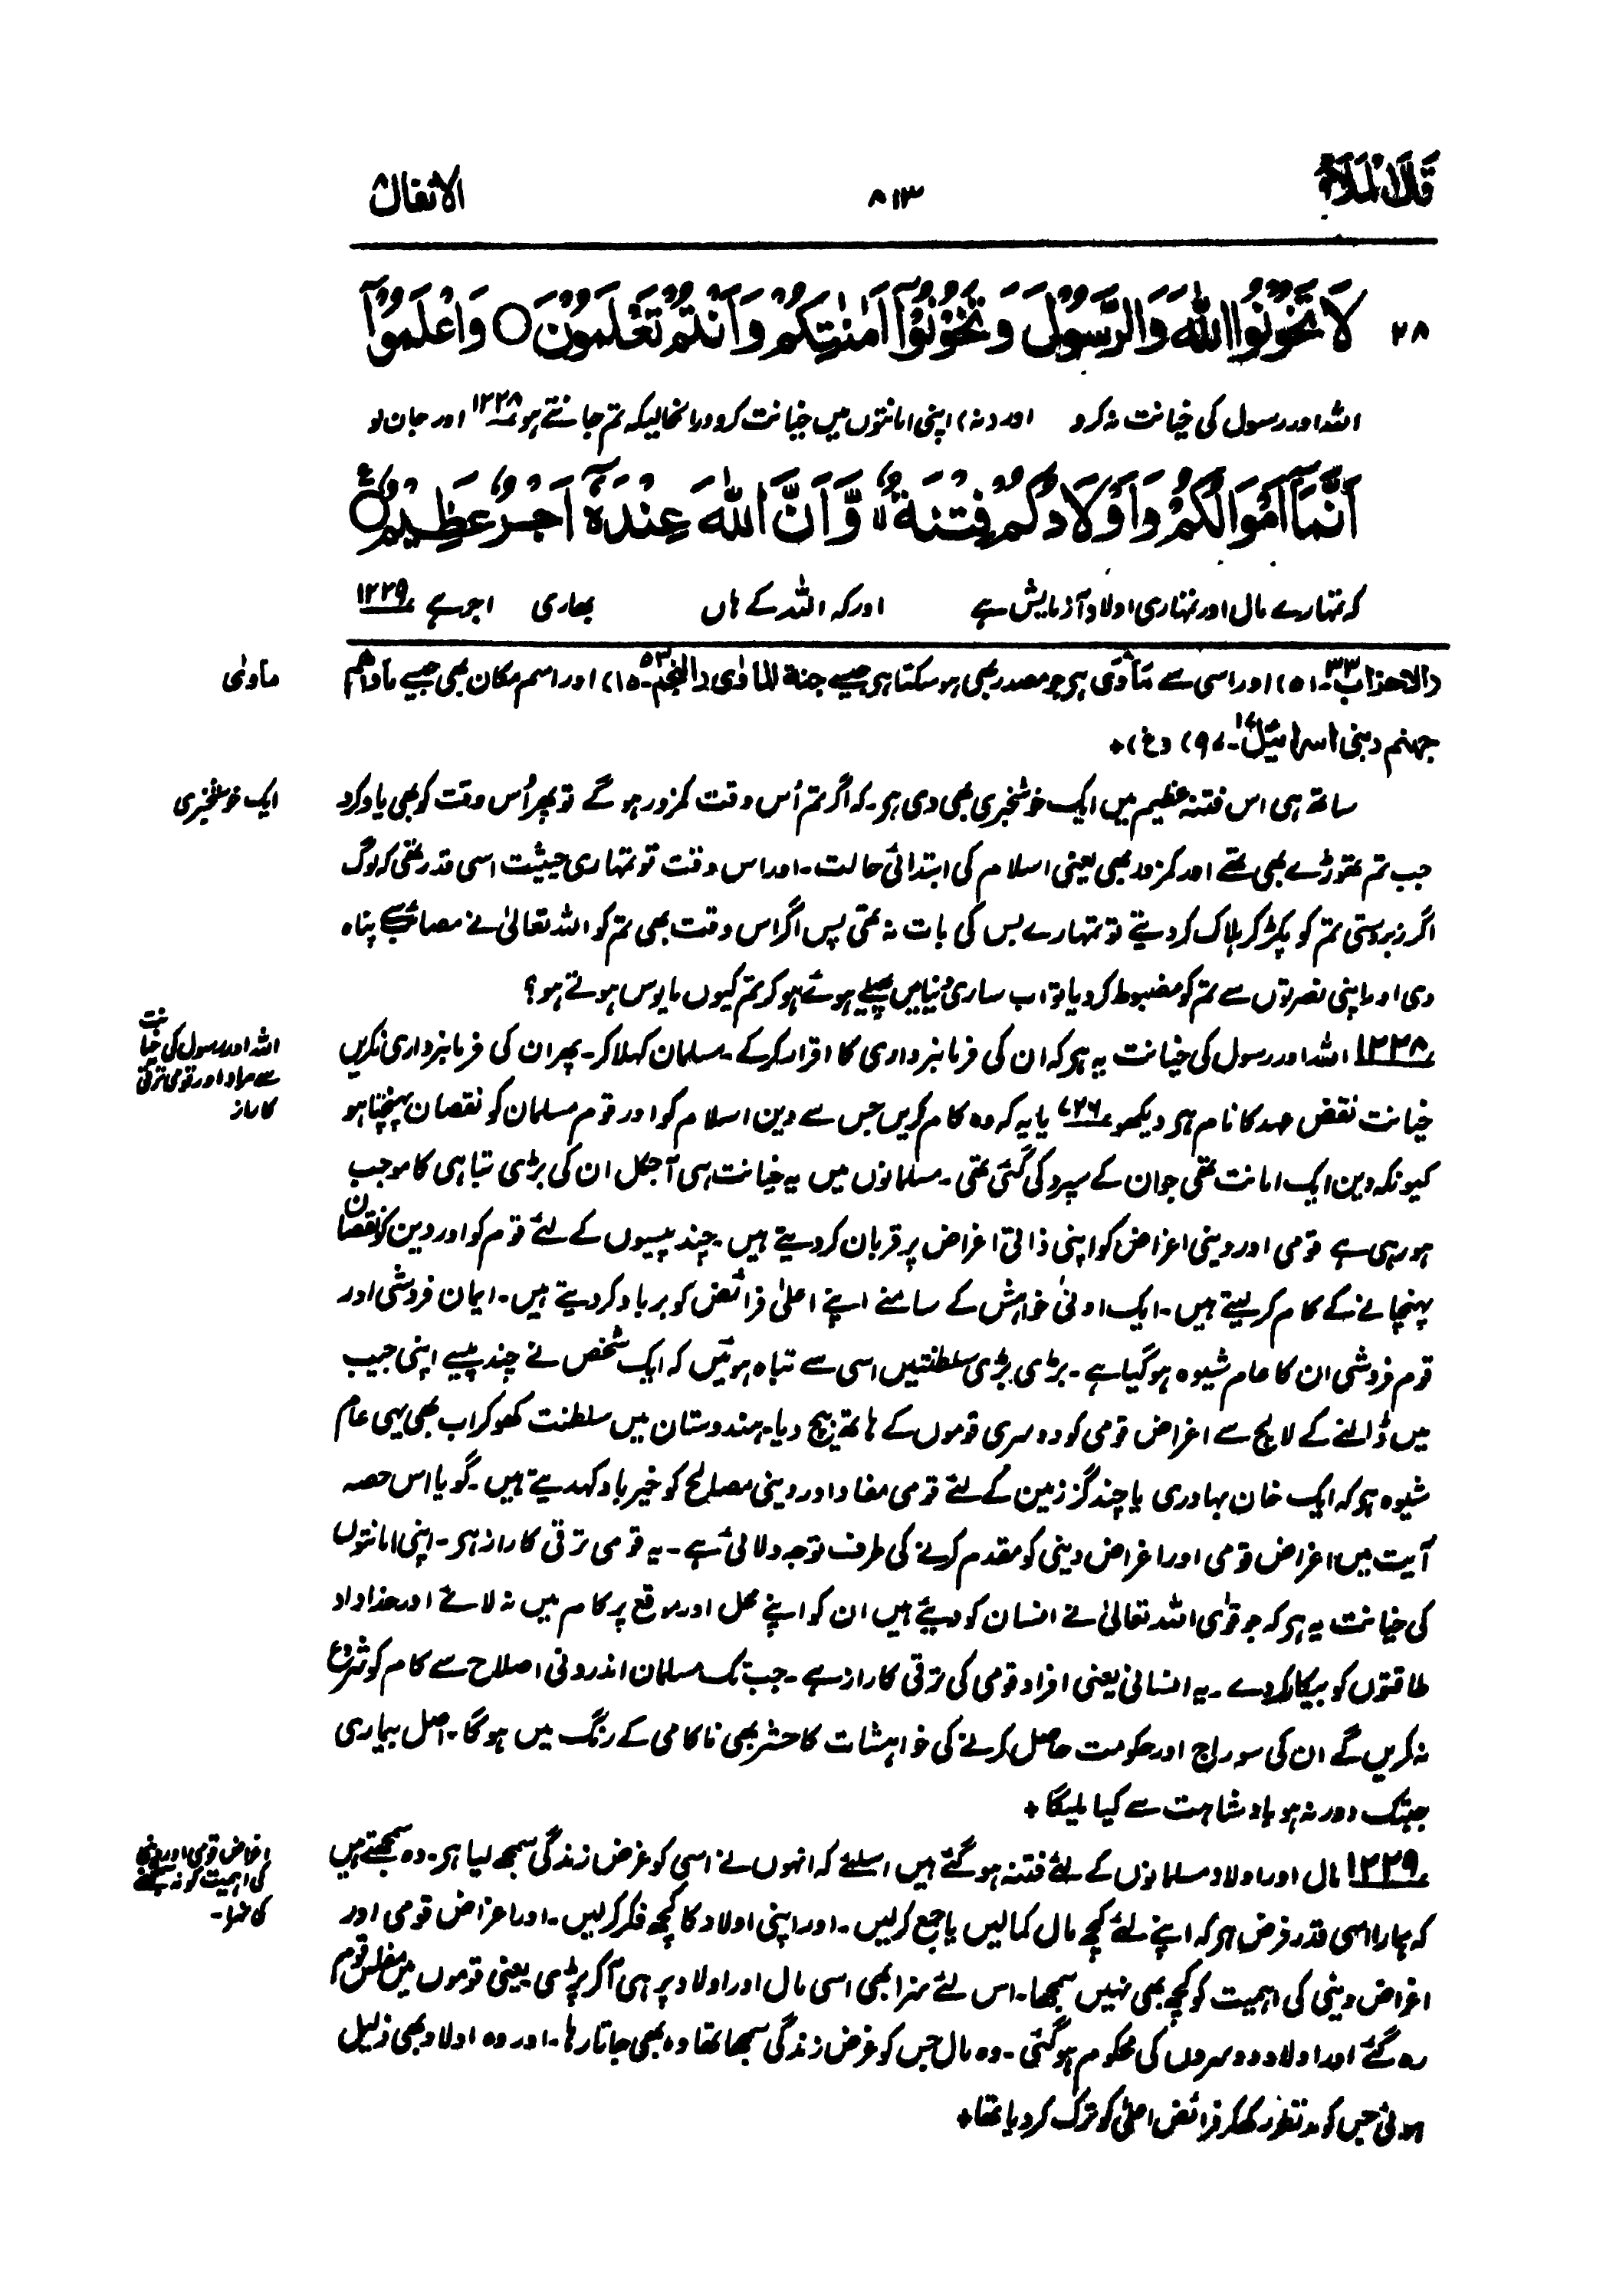 قال الملا
۸۱۳
الانفال
۲۸
لَا تَخُوْنُوا اللّٰهَ وَالرَّسُوْلَ وَ تَخُوْنُوْۤا اَمٰنٰتِكُمْ وَاَنْتُمْ تَعْلَمُوْنَ ○ وَاعْلَمُوْۤا
اللہ اور رسول کی خیانت نہ کرو اور (نہ) اپنی امانتوں میں خیانت کرو درانحالیکہ تم جانتے ہو ۱۲۲۸ اور جان لو
اَنَّمَاۤ اَمْوَالُكُمْ وَاَوْلَادُكُمْ فِتْنَةٌ ۙ وَّاَنَّ اللّٰهَ عِنْدَهٗۤ اَجْرٌ عَظِيْمٌ ○
کہ تمہارے مال اور تمہاری اولاد آزمایش ہے اور کہ اللہ کے ہاں بھاری اجر ہے ۱۲۲۹
(الاحزاب ۳۳۔۵۱) اور اسی سے مَأوٰی ہے جو مصدر بھی ہو سکتا ہے جیسے جنة الماوٰی (النجم ۵۳۔۱۵) اور اسم مکان بھی جیسے مأواهم
ماوٰی
جہنم (بنی اسرائیل ۱۷۔۹۷) (غ)+
ساتھ ہی اس فتنہ عظیم میں ایک خوشخبری بھی دی ہے۔ کہ اگر تم اُس وقت کمزور ہو گے تو پھر اُس وقت کو بھی یاد کرو
ایک خوشخبری
جب تم تھوڑے بھی تھے اور کمزور بھی یعنی اسلام کی ابتدائی حالت۔ اور اس وقت تو تمہاری حیثیت اسی قدر تھی کہ لوگ
اگر زبردستی تم کو پکڑ کر ہلاک کر دیتے تو تمہارے بس کی بات نہ تھی پس اگر اس وقت بھی تم کو اللہ تعالیٰ نے مصائب سے پناہ
دی اور اپنی نصرتوں سے تم کو مضبوط کر دیا تو اب ساری دنیا میں پھیلے ہوئے ہو کر تم کیوں مایوس ہوتے ہو؟
۱۲۲۸ اللہ اور رسول کی خیانت یہ ہے کہ ان کی فرمانبرداری کا اقرار کر کے۔ مسلمان کہلا کر۔ پھر ان کی فرمانبرداری نہ کریں
اللہ اور رسول کی خیانت
سے مراد اور قومی ترقی
کا راز
خیانت نقض عہد کا نام ہے دیکھو ۷۲۶ یا یہ کہ وہ کام کریں جس سے دین اسلام کو اور قوم مسلمان کو نقصان پہنچتا ہو
کیونکہ دین ایک امانت تھی جو ان کے سپرد کی گئی تھی۔ مسلمانوں میں یہ خیانت ہی آجکل ان کی بڑی تباہی کا موجب
ہو رہی ہے قومی اور دینی اغراض کو اپنی ذاتی اغراض پر قربان کر دیتے ہیں۔ چند پیسیوں کے لئے قوم کو اور دین کو نقصان
پہنچانے کے کام کر لیتے ہیں۔ ایک ادنیٰ خواہش کے سامنے اپنے اعلیٰ فرائض کو برباد کر دیتے ہیں۔ ایمان فروشی اور
قوم فروشی ان کا عام شیوہ ہو گیا ہے۔ بڑی بڑی سلطنتیں اسی سے تباہ ہوئیں کہ ایک شخص نے چند پیسے اپنی جیب
میں ڈالنے کے لالچ سے اغراض قومی کو دوسری قوموں کے ہاتھ بیچ دیا۔ ہندوستان میں سلطنت کھو کر اب بھی یہی عام
شیوہ ہے کہ ایک خان بہادری یا چند گز زمین کے لئے قومی مفاد اور دینی مصالح کو خیرباد کہدیتے ہیں۔ گویا اس حصہ
آیت میں اغراض قومی اور اغراض دینی کو مقدم کرنے کی طرف توجہ دلائی ہے۔ یہ قومی ترقی کا راز ہے۔ اپنی امانتوں
کی خیانت یہ ہے کہ جو قوٰی اللہ تعالیٰ نے انسان کو دیئے ہیں ان کو اپنے محل اور موقع پر کام میں نہ لائے اور خداداد
طاقتوں کو بیکار کر دے۔ یہ انسانی یعنی افراد قومی کی ترقی کا راز ہے۔ جب تک مسلمان اندرونی اصلاح سے کام کو شروع
نہ کریں گے ان کی سوراج اور حکومت حاصل کرنے کی خواہشات کا حشر بھی ناکامی کے رنگ میں ہوگا۔ اصل بیماری
جبتک دور نہ ہو بادشاہت سے کیا ملیگا+
۱۲۲۹ مال اور اولاد مسلمانوں کے لئے فتنہ ہو گئے ہیں اسلئے کہ انہوں نے اسی کو غرض زندگی سمجھ لیا ہے۔ وہ سمجھتے ہیں
اغراض قومی اور دینی
کی اہمیت کو نہ سمجھنے
کی سزا۔
کہ ہمارا اسی قدر فرض ہے کہ اپنے لئے کچھ مال کمالیں یا جمع کرلیں۔ اور اپنی اولاد کا کچھ فکر کرلیں۔ اور اغراض قومی اور
اغراض دینی کی اہمیت کو کچھ بھی نہیں سمجھا۔ اس لئے سزا بھی اسی مال اور اولاد پر ہی آکر پڑی یعنی قوموں میں مفلس قوم
رہ گئے اور اولاد دوسروں کی محکوم ہو گئی۔ وہ مال جس کو غرض زندگی سمجھا تھا وہ بھی جاتا رہا۔ اور وہ اولاد بھی ذلیل
ہوئی جس کو مدنظر رکھکر فرائض اعلیٰ کو ترک کر دیا تھا+